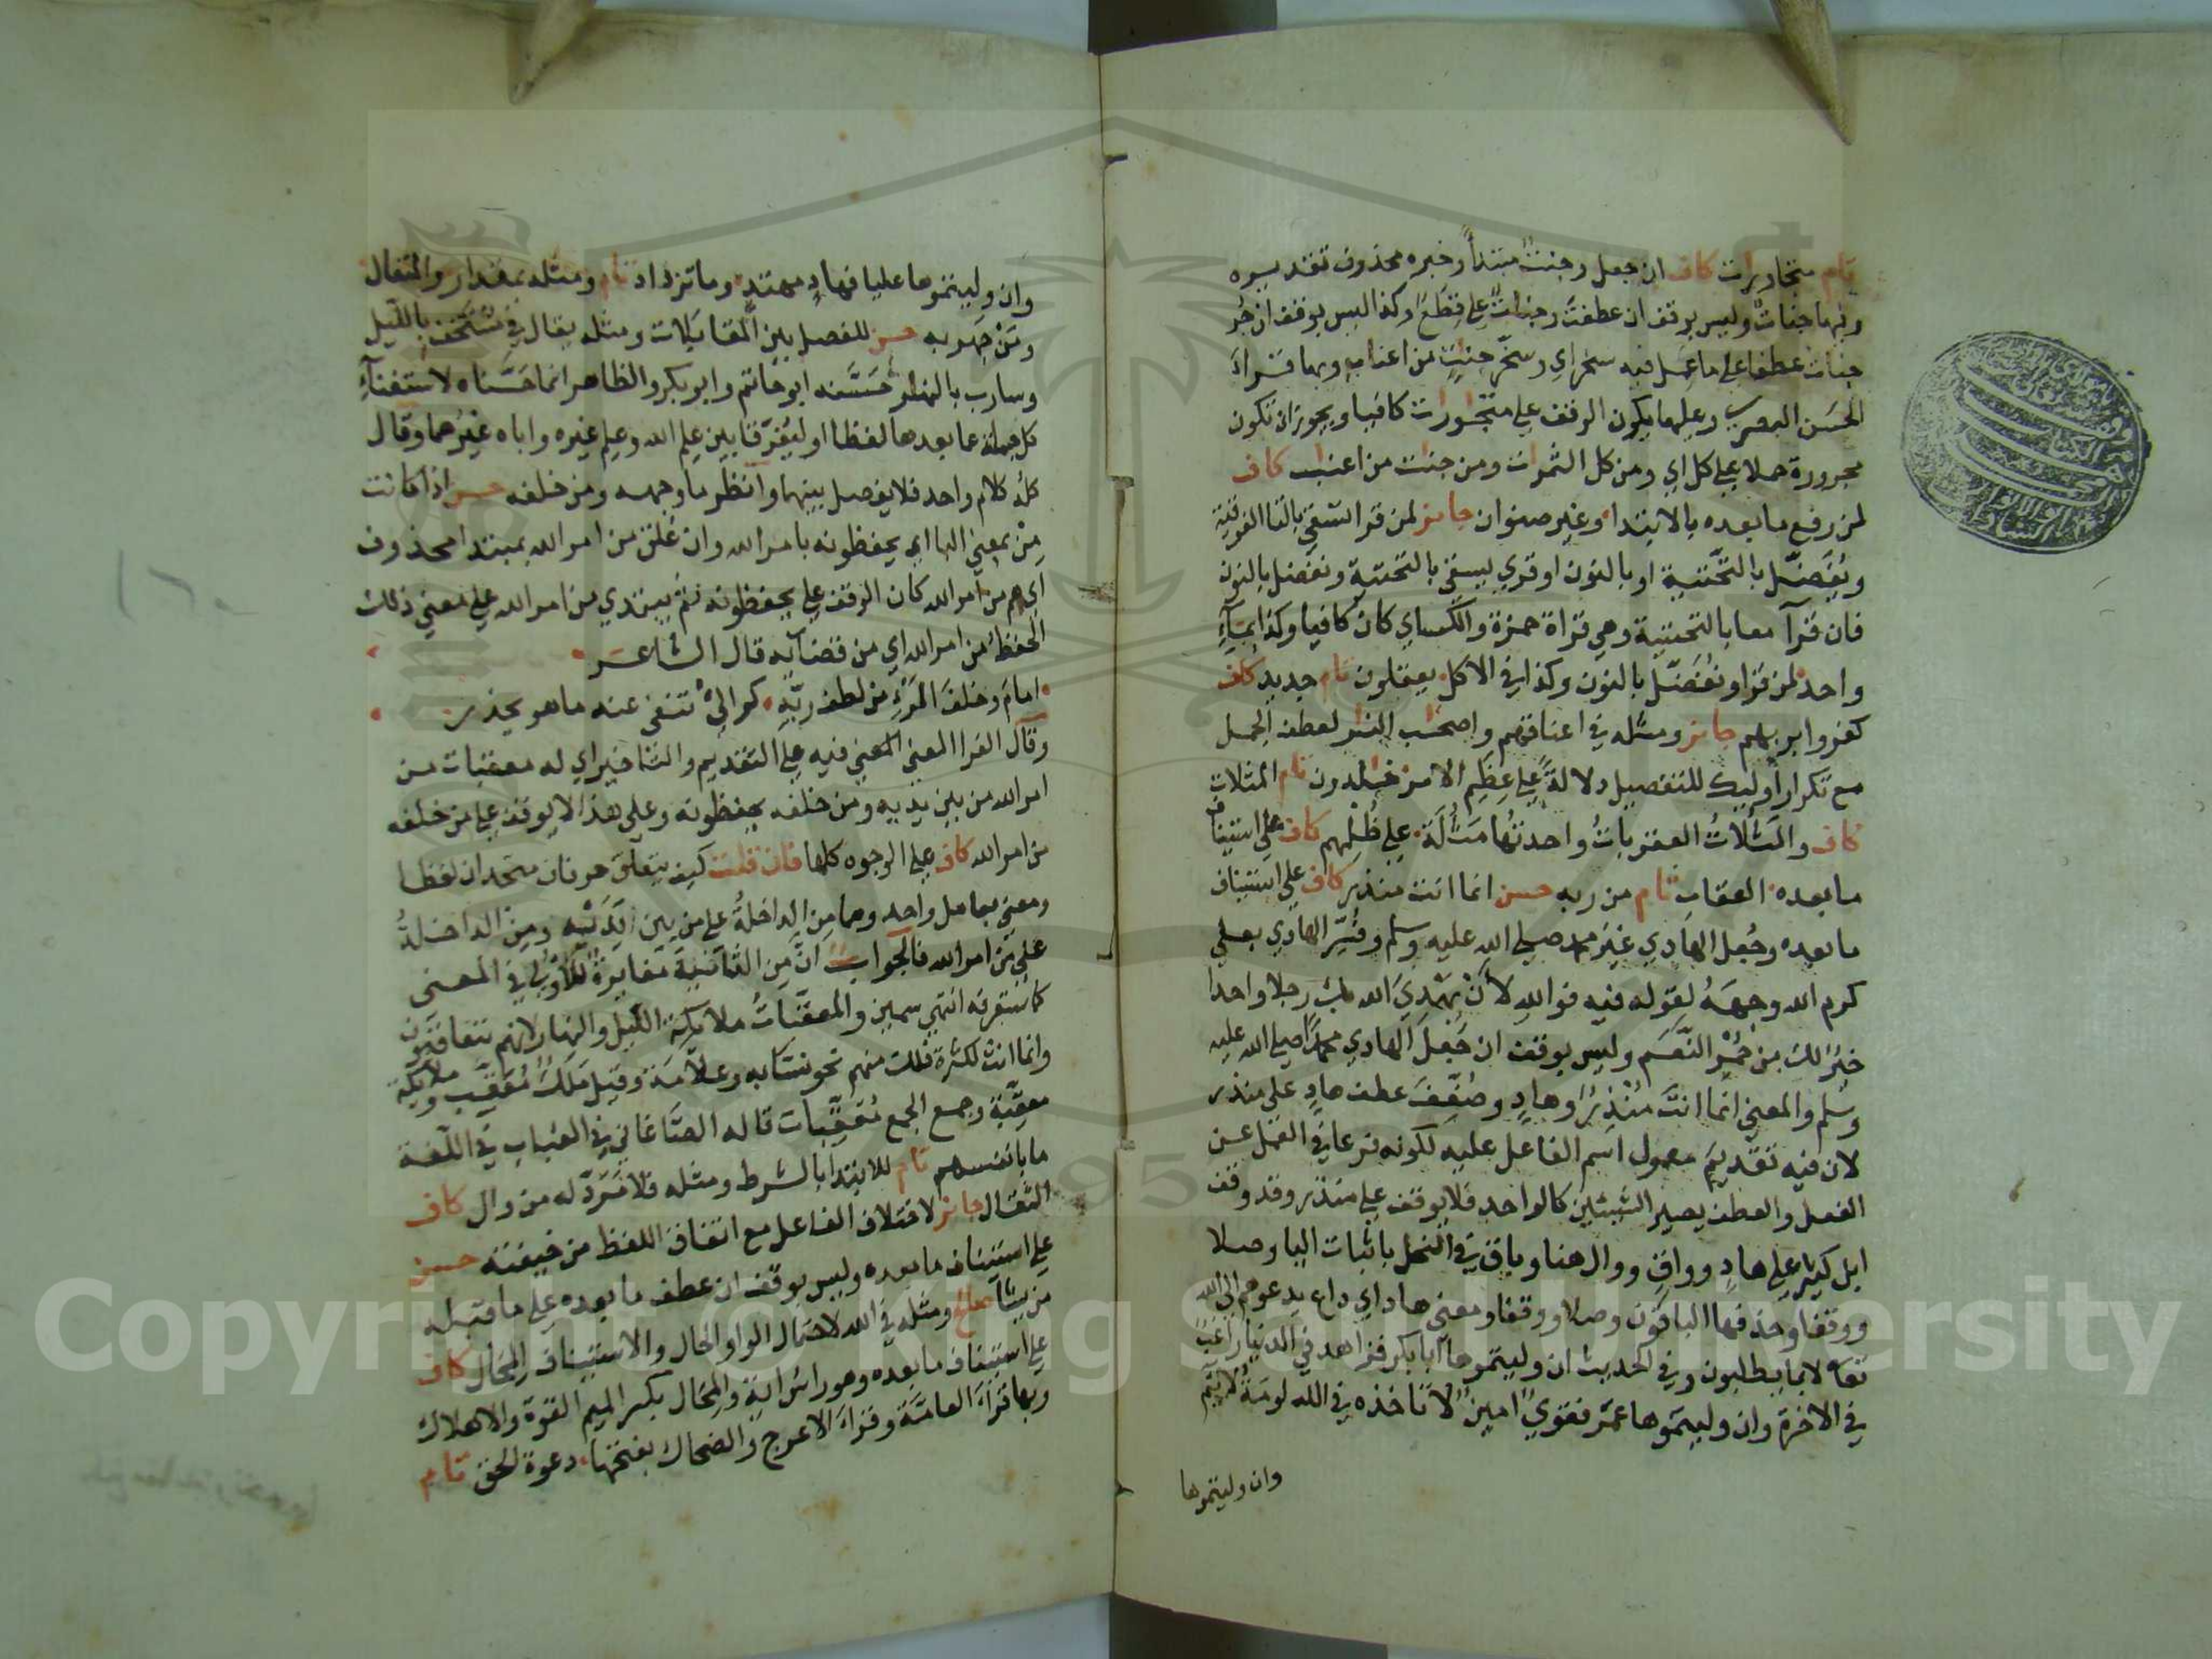 تام متجاورات كاف ان جعل وجنت مبتدأ وخبره محذوف تقديره
وفيها جناتٌ وليس بوقف ان عطفت وجنات على قطع وكذا ليس بوقف ان جُر
جنات عطفا على ما عمل فيه سخر اي وسخّر جنتٍ من اعناب وبها قراء
الحسَن البصري وعليهما يكون الوقف على متجورات كافيا ويجوز ان تكون
مجرورة حملا على كل اي ومن كل الثمرات ومن جنت من اعناب كاف
لمن رفع ما بعده بالابتدا وغير صنوان جايز لمن قرا تسقى بالتا الفوقية
ويُفَضّل بالتَّحتية او بالنون او قري يسقي بالتحتية ونفضل بالنون
فان قرآ معا بالتحتية وهي قراة حمزة والكساي كان كافيا وكذا بمآءٍ
واحد لمن قرا ونُفَضّل بالنون وكذا في الاكل يعقلون تام جديد كاف
كفروا بربهم جايز ومثله في اعناقهم واصحٰب النار لعطف الجمل
مع تكرار أوليك للتفصيل دلالةً على عِظَم الامر خٰلدون تام المثلات
كاف والمَثُلاتُ العقوباتُ واحدتُها مَثُلَة على ظُلمهم كاف على استيناف
ما بعده العقاب تام من ربه حسن انما انت منذر كاف على استيناف
ما بعده وجُعل الهادي غيرَ محمد صلى الله عليه وسلم وفُسِّر الهادي بعلي
كرم الله وجهَهُ لقوله فيه فوالله لأَنْ يَهْدِيَ الله بك رجلا واحدا
خيرٌ لك من حُمْر النَّعَم وليس بوقف ان جُعِل الهادي محمدًا صلى الله عليه
وسلم والمعنى انما انتَ مُنْذِرٌ وهادٍ وضُعِّفَ عطف هادٍ على منذر
لان فيه تقديمَ معمول اسم الفاعل عليه لكونه فرعا في العَمل عن
الفعل والعطف يصير الشيئين كالواحد فلا يوقف على منذر وقد وقف
ابن كثير على هادٍ وواقٍ ووال هنا وباق في النحل باثبات اليا وصلا
ووقفا وحذفها الباقون وصلا ووقفا ومعنى هاد اي داع يدعوهم الى الله
تعالى لا بما يطلبون وفي الحديث ان وليتموها ابا بكر فزاهد في الدنيا راغبٌ
في الاخرة وان وليتموها عمَر فقويٌ امينٌ لا تاخذه في الله لومَةُ لائم
وان وليتموها
وان وليتموها عليا فهادٍ مهتدٍ وما تزداد تام ومثله بمقدار والمتعال
ومَنْ جهر به حسن للفصل بين المقابلات ومثله يقال في مُسْتَخْفٍ بالليل
وسارب بالنهار حَسَّنه ابو حاتم وابو بكر والظاهر انما حَسَّناه لاستغنآءِ
كل جملة عما بعدها لفظا او ليُفرّقا بين علم الله وعلم غيره واباه غيرُهما وقال
كلُّه كلام واحد فلا يفصل بينهما وانظر ما وجهه ومن خلفه حسن اذا كانت
مِنْ بمعنى البا اي يحفظونه بامر الله وان عُلّق من امر الله بمبتدا محذوف
اي هم من امر الله كان الوقف على يحفظونه ثم يبتدي من امر الله على معنى ذلك
الحفظُ من امر الله اي من قضايه قال الشاعر
امامَ وخلفَ المَرْءِ من لطف ربّه كوالئُ تنفي عنه ما هو يحذر
وقال الفرا المعنى فيه على التقديم والتاخير اي له معقبات من
امر الله من بين يديه ومن خلفه يحفظونه وعلى هذا لا يوقف على من خلفه
من امر الله كاف على الوجوه كلها فان قلت كيف يتعلق حرفان متحدان لفظا
ومعنى بعامل واحد وهما مِن الداخلةُ على من بين يَدَيْه ومِن الداخلةُ
على مِن امر الله فالجواب انَّ مِن الثانيَةَ مغايرةٌ للأولى في المعنى
كما ستعرفه انتهى سمين والمعقّباتُ ملايكة الليل والنهار لانهم يتعاقبون
وانما انث لكثرة ذلك منهم نحو نسّابه وعلّامة وقيل مَلَكٌ مُعَقِّب وملايكة
معقّبة وجمع الجمع مُعَقِّبات قاله الصَّاغاني في العُباب في اللّغة
ما بانفسهم تام للابتدا بالشرط ومثله فلا مَرَدّ له من وال كاف
الثقال جايز لاختلاف الفاعل مع اتفاق اللفظ من خيفته حسن
على استيناف ما بعده وليس بوقف ان عطف ما بعده على ما قبله
من يشآ صالح ومثله في الله لاحتمال الواو الحال والاستيناف المحال كاف
على استيناف ما بعده وهو راس اية والمِحَال بكسر الميم القوة والاهلاك
وبها قرأ العامَّة وقرأ الاعرج والضحاك بفتحها دعوة الحق تام
Copyright © King Saud University
1957